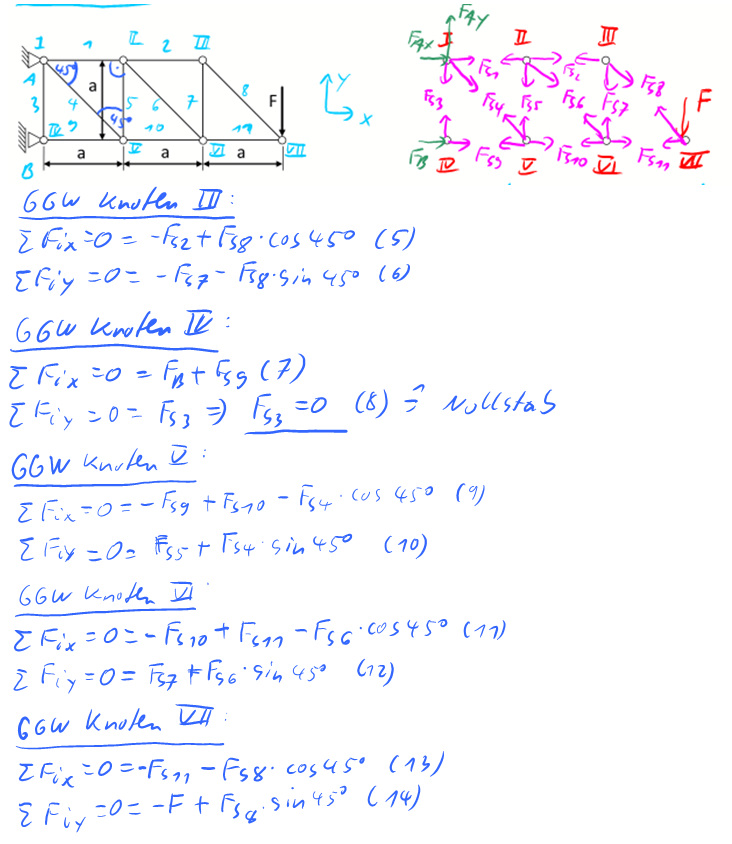 I 1 II 2 III
A 45° a 3 4 5 6 7 8 F
45°
IV 9 V 10 VI 11 VII
B a a a
Y
x
F_Ay
F_Ax I II III
F_S1 F_S2 F_S8
F_S3 F_S4 F_S5 F_S6 F_S7 F
F_B IV F_S9 V F_S10 VI F_S11 VII
GGW Knoten III:
ΣF_ix=0=-F_S2+F_S8·cos45° (5)
ΣF_iy=0=-F_S7-F_S8·sin 45° (6)
GGW Knoten IV:
ΣF_ix=0=F_B+F_S9 (7)
ΣF_iy=0=F_S3 ⇒ F_S3=0 (8) ≙ Nullstab
GGW Knoten V:
ΣF_ix=0=-F_S9+F_S10-F_S4·cos 45° (9)
ΣF_iy=0=F_S5+F_S4·sin45° (10)
GGW Knoten VI:
ΣF_ix=0=-F_S10+F_S11-F_S6·cos45° (11)
ΣF_iy=0=F_S7+F_S6·sin45° (12)
GGW Knoten VII:
ΣF_ix=0=-F_S11-F_S8·cos45° (13)
ΣF_iy=0=-F+F_S8·sin45° (14)